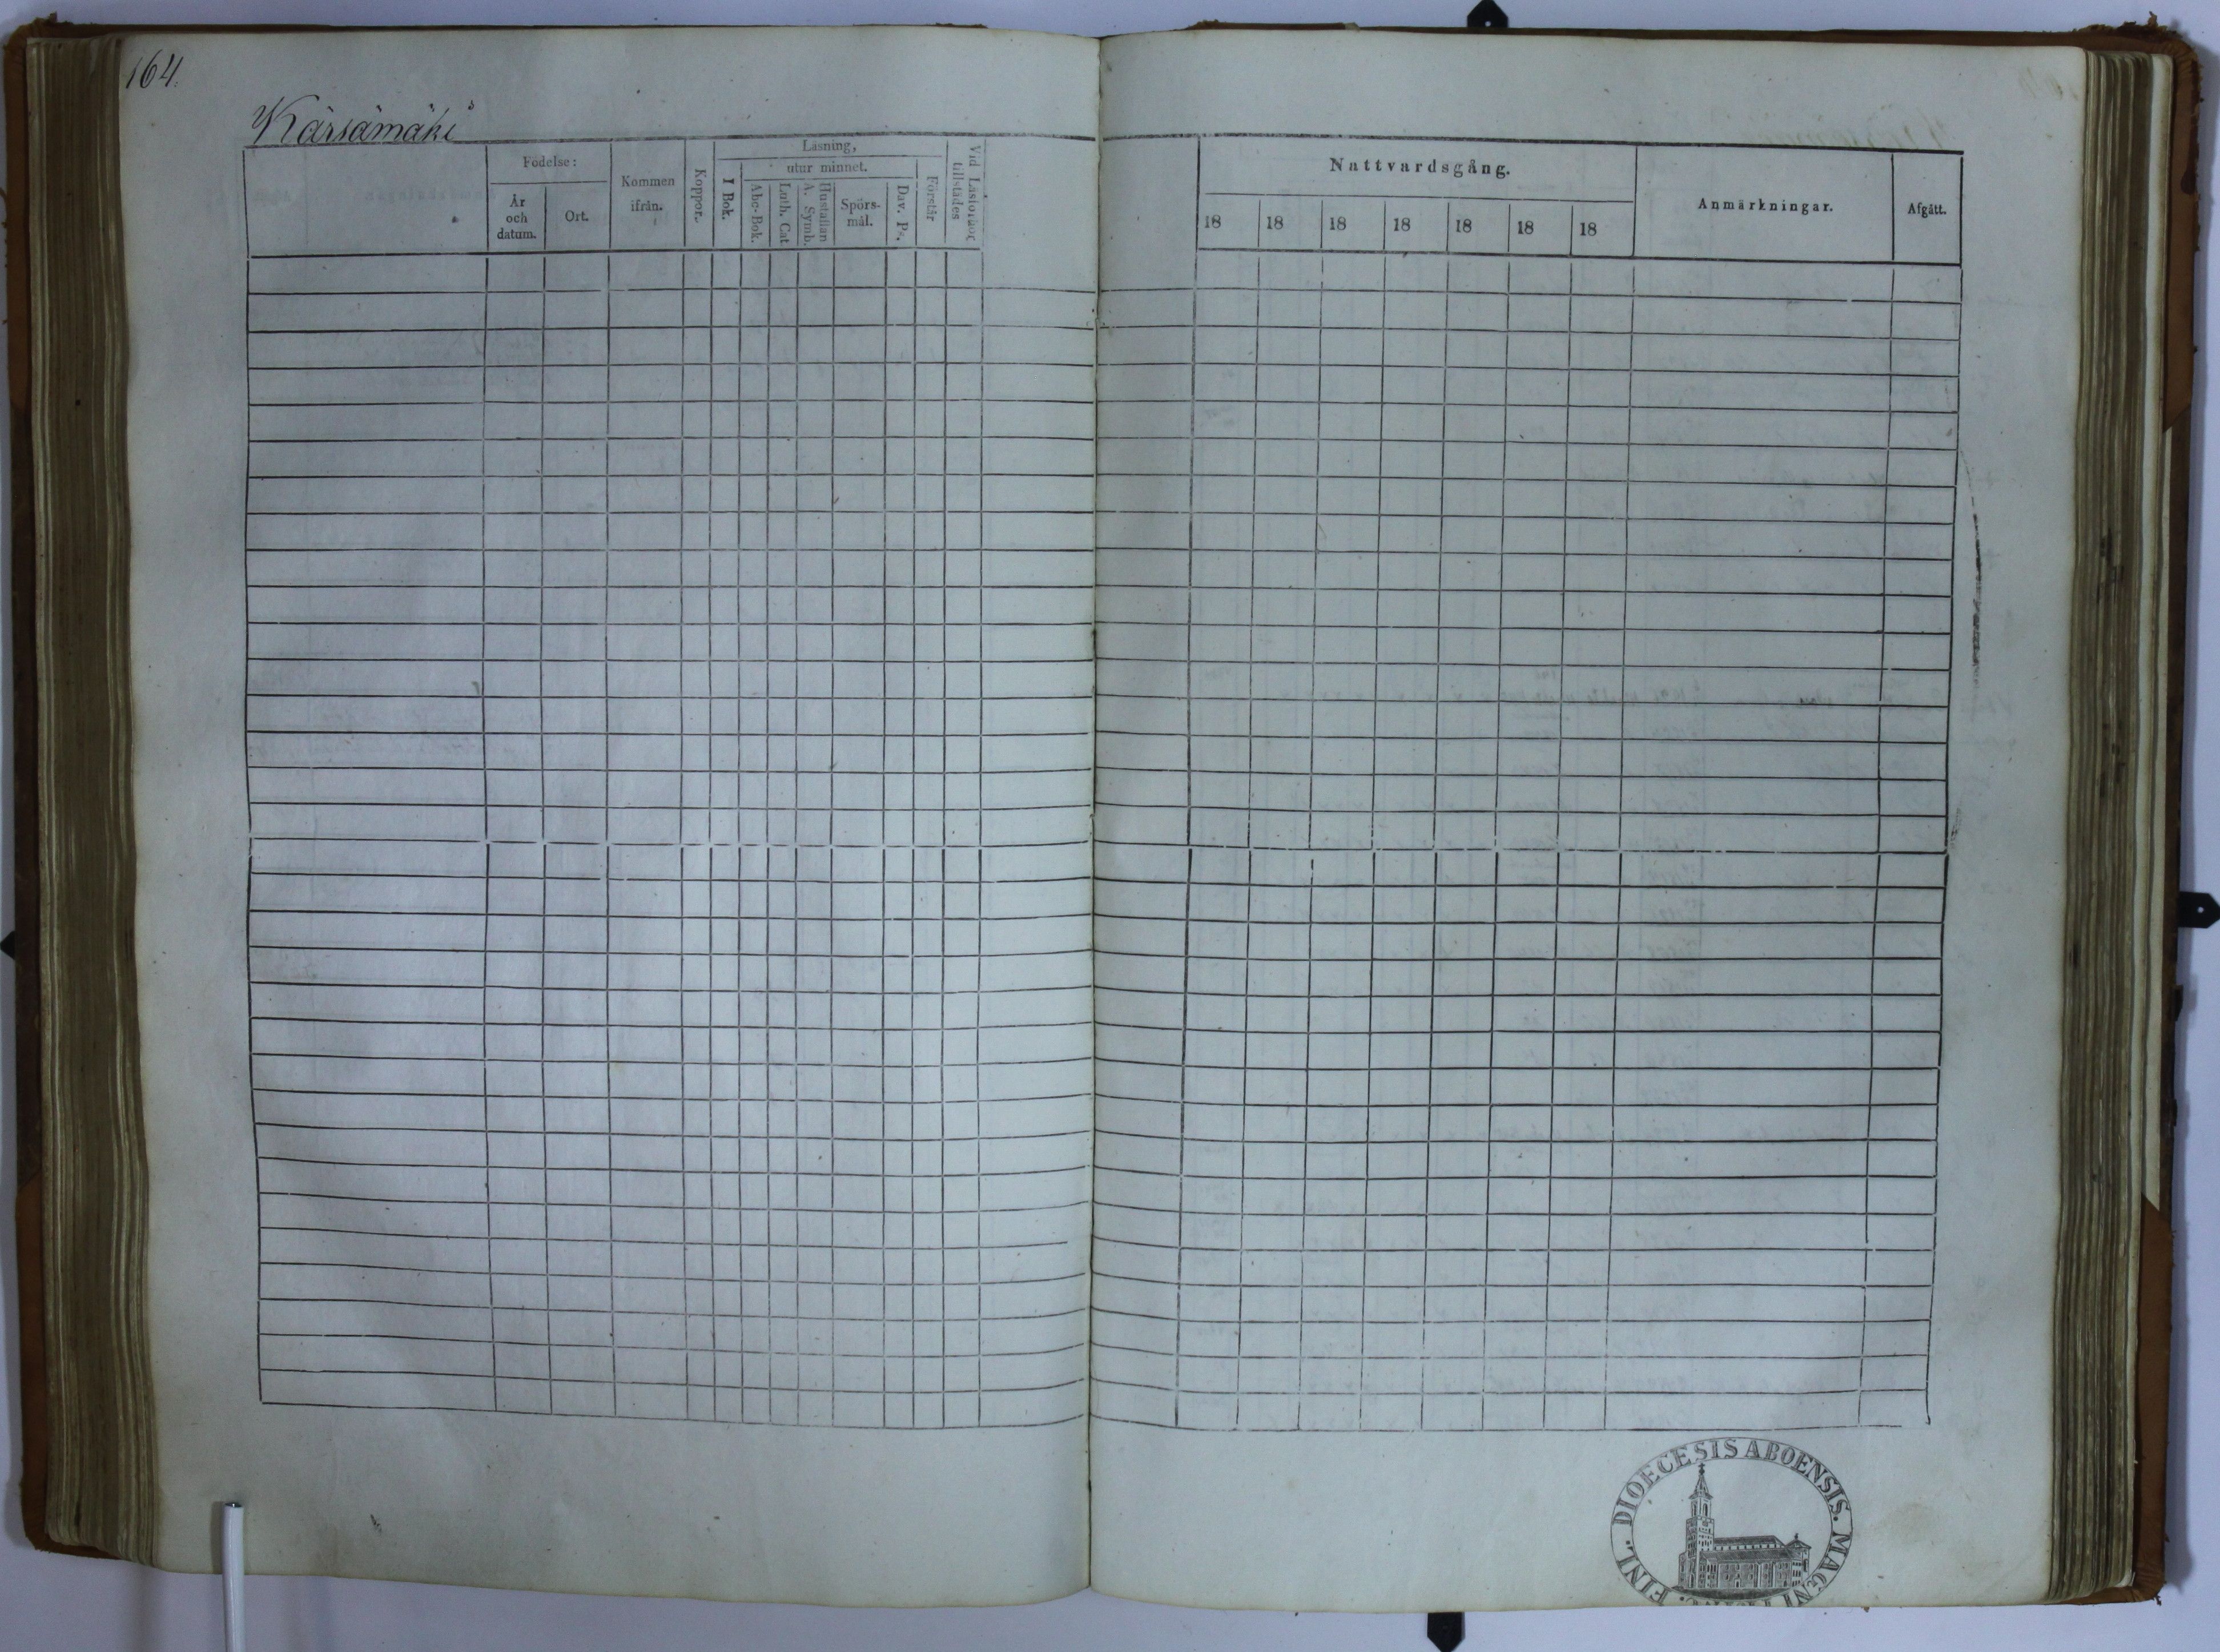 164.
Kärsämäki
Födelse:
År och datum.
Ort.
Kommen ifrån.
Koppor.
Läsning,
I Bok.
utur minnet.
Abc-Bok.
Luth. Cat
Hustaflan
A. Symb.
Spörs-
mål.
Dav. Ps.
Förstår
Vid Läsförhör
tillstädes
Nattvardsgång.
18 18 18 18 18 18 18
Anmärkningar.
Afgått.
FINL. DIOECESIS ABOENSIS. MAGNI